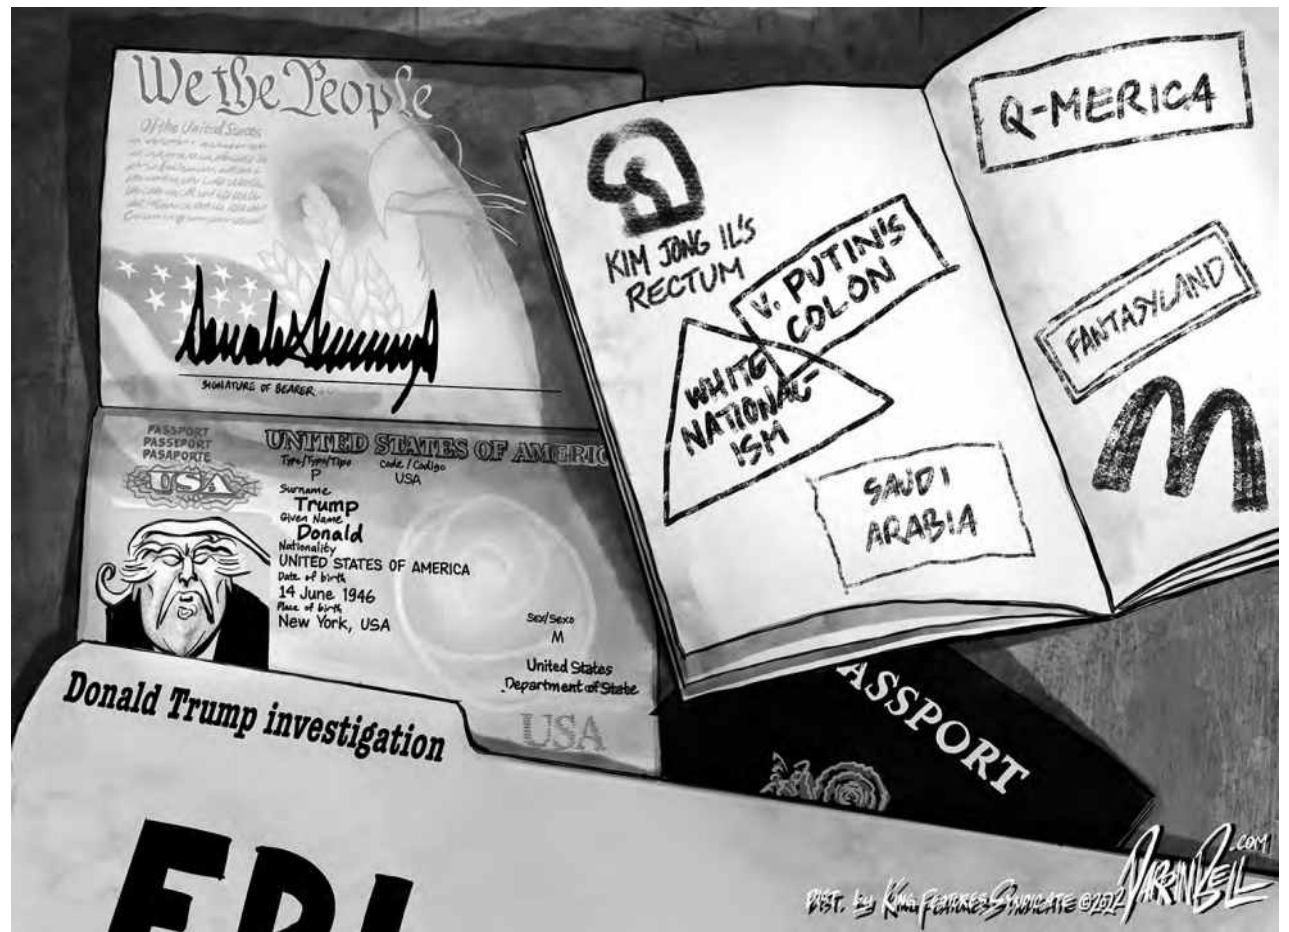 We the People
Of the United States
SIGNATURE OF BEARER
PASSPORT
PASSEPORT
PASAPORTE
USA
UNITED STATES OF AMERIC
Type/Type/Tipo
Code / Codigo
P
USA
Surname
Trump
Given Name
Donald
Nationality
UNITED STATES OF AMERICA
Date of birth
14 June 1946
Place of birth
New York, USA
Sex/Sexo
M
United States
Department of State
USA
KIM JONG IL'S
RECTUM
V. PUTIN'S
COLON
WHITE
NATIONAL-
ISM
SAUDI
ARABIA
Q-MERICA
FANTASYLAND
M
ASSPORT
Donald Trump investigation
FBI
DIST. by KING FEATURES SYNDICATE ©2022 DARRIN BELL .COM